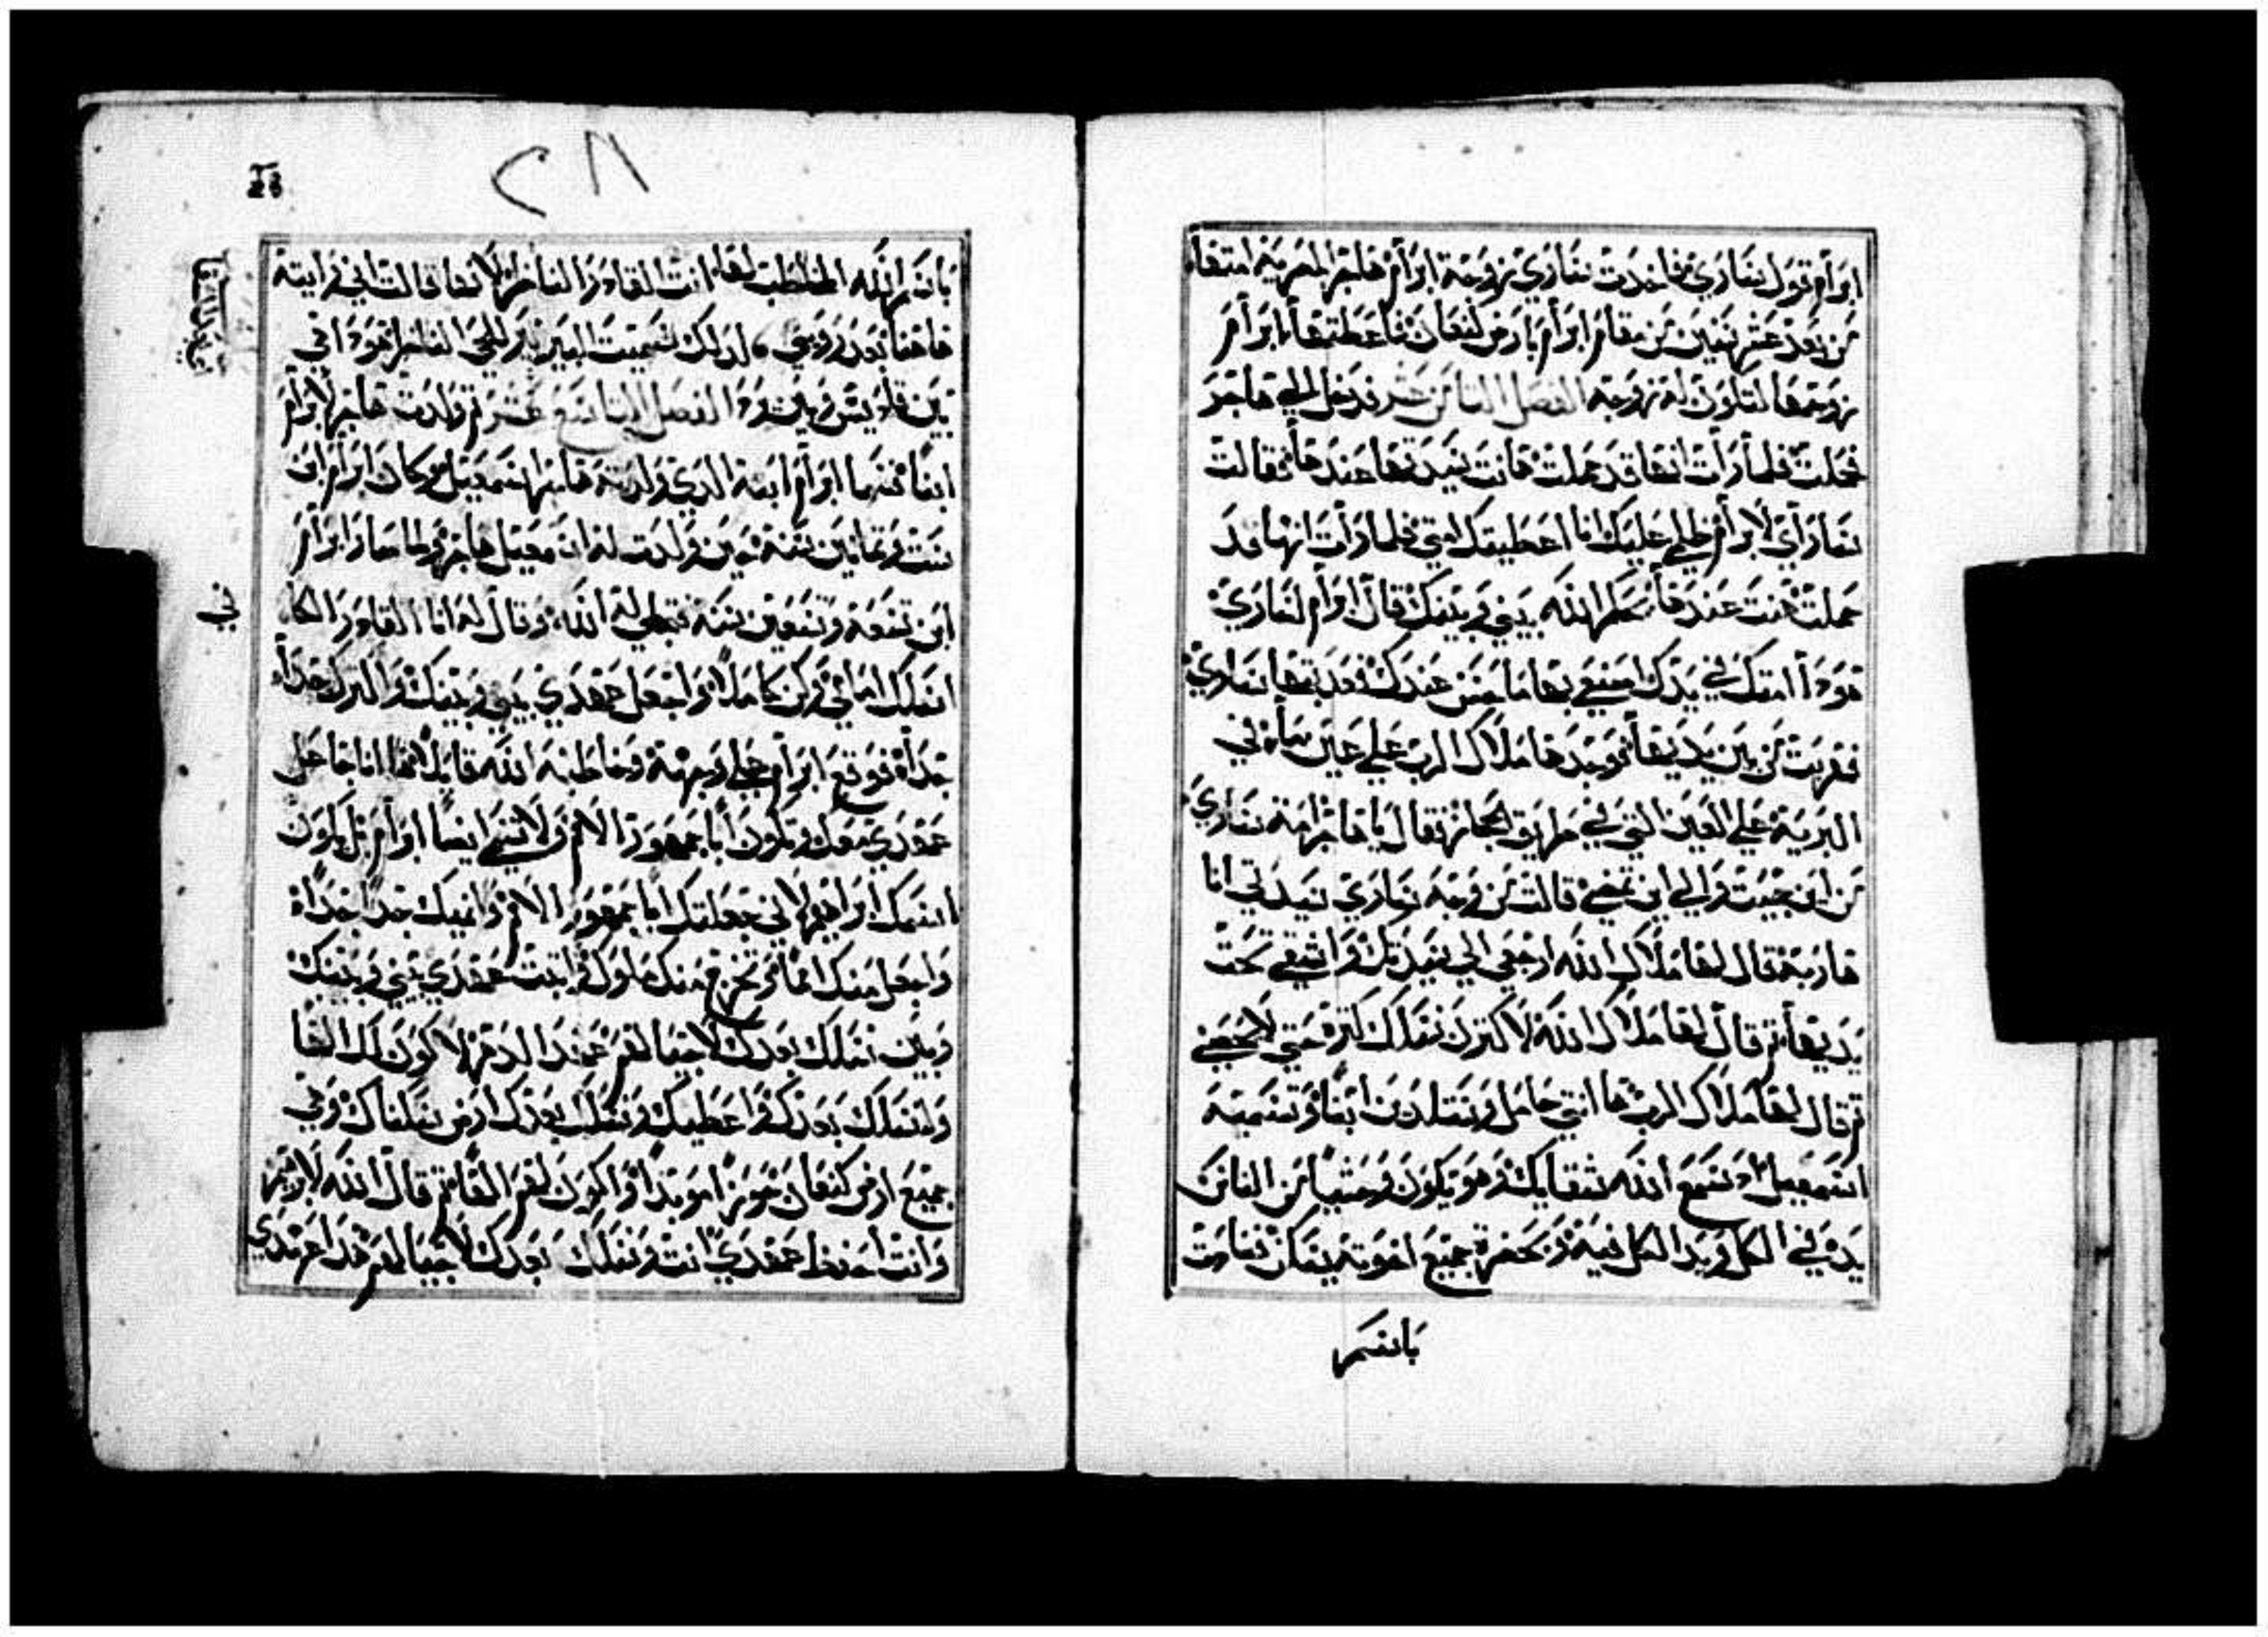 ابرام قول ساراي فاخدت ساراي زوجة ابرام هاجر المصرية امتها
من بعد عشر سنين من مقام ابرام بارض كنعان فاعطتها ابرام
زوجها لتكون له زوجه الفصل التامن عشر فدخل الي هاجر
فحملت فلما رات انها قد حملت هانت سيدتها عندها فقالت
ساراي لابرام ظلمي عليك انا اعطيتك امتي فلما رات انها قد
حملت هنت عندها يحكم الله بيني وبينك قال ابرام لساراي
هودا امتك في يدك اصنعي بها ما حسن عندك فعدبتها ساراي
فهربت من بين يديها فوجدها ملاك الرب علي عين ماء في
البرية علي العين التي في طريق الحجاز فقال يا هاجر امة ساراي
من اين جيت والي اين تمضي قالت من وجه ساراي سيدتي انا
هاربة فقال لها ملاك الله ارجعي الي سيدتك واشقي تحت
يديها تم قال لها ملاك الله لاكترن نسلك كترة حتي لا يحصي
تم قال لها ملاك الرب ها انتي حامل وستلدين ابنا وتسميه
اسمعيل اد سمع الله شقايك وهو يكون وحشيا من الناس
يده في الكل ويد الكل فيه وبحضرة جميع اخوته يسكن فنادت
باسم
28
٢٨
باسم الله المخاطب لها انت القادر الناظر لانها قالت اني رايته
هاهنا بعد رويتي لدلك سميت البير بير الحي الناظر هودا في
بين قاديس وبين برد الفصل التاسع عشر تم ولدت هاجر لابرام
ابنا فسما ابرام ابنه الدي ولدته هاجر اسمعيل وكان ابرام ابن
ست وتمانين سنة حين ولدت له اسمعيل هاجر ولما صار ابرام
ابن تسعة وتسعين سنه فتجلي له الله وقال له انا القادر الكا
في
اسلك امامي وكن كاملا واجعل عهدي بيني وبينك واكترك جدا
جدا فوقع ابرام علي وجهه وخاطبه الله قايلا ها انا جاعل
عهدي معك وتكون ابا جمهور الامم ولا يسمي ايضا ابرام بل يكون
اسمك ابراهيم لاني جعلتك ابا جمهور الامم وانميك جدا جدا
واجعل منك امما وتخرج منك ملوك واتبت عهدي بيني وبينك
وبين نسلك بعدك لاجيالهم عهد الدهر لاكون لك الها
ولنسلك بعدك واعطيك ونسلك بعدك ارض سكناك وفي
جميع ارض كنعان حوزا موبدا واكون لهم الها تم قال الله لابرهيم
وانت احفظ عهدي انت ونسلك بعدك لاجيالهم هدا عهدي